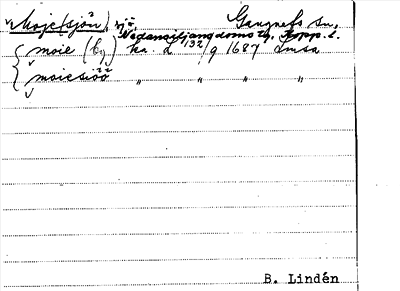 Moje(sjön) sjö, Gagnefs sn,
Nedansiljans domsag, Kopp. l.
moie (by) ka. d 1/9 1687 Lmsa
moiesiöö " " " "
B. Lindén